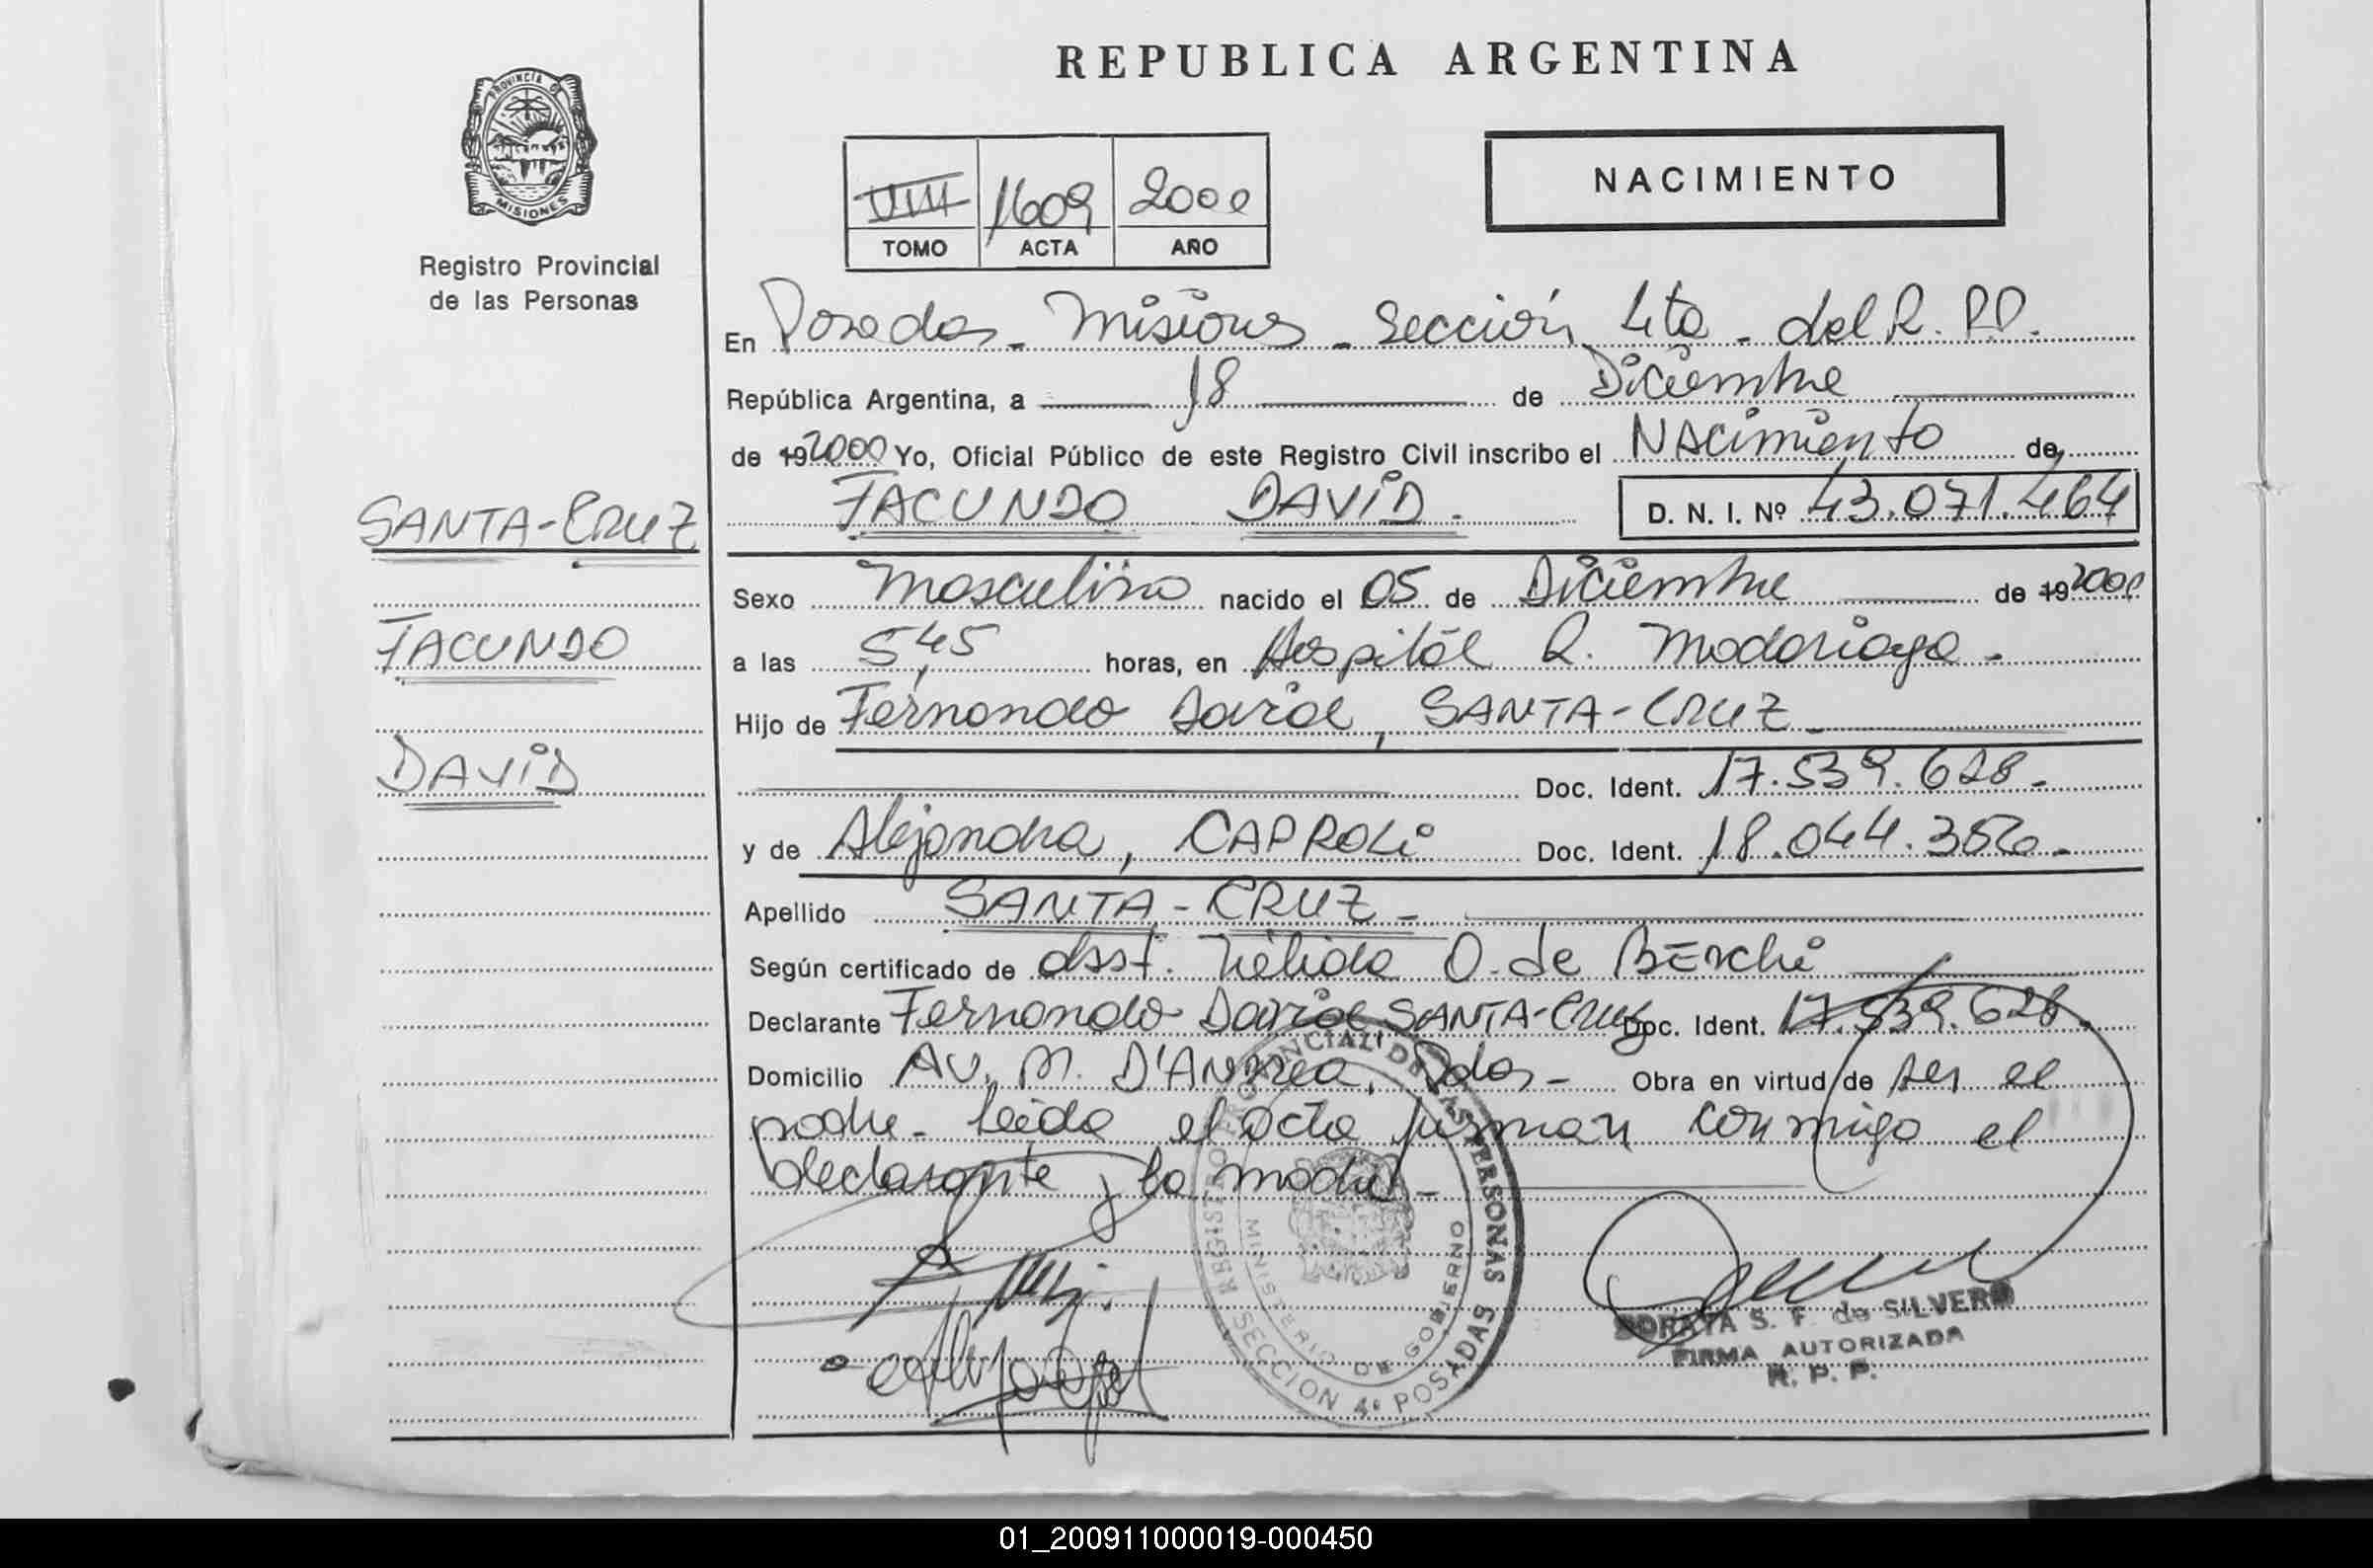 REPUBLICA ARGENTINA
PROVINCIA DE
MISIONES
Registro Provincial
de las Personas
VIII 1609 2000
TOMO ACTA AÑO
NACIMIENTO
En Posadas - Misiones - Sección 4ta - del R. P.P.
República Argentina, a 18 de Diciembre
de 19 2000 Yo, Oficial Público de este Registro Civil inscribo el Nacimiento de
SANTA-CRUZ
FACUNDO DAVID. D. N. I. Nº 43.071.464
Sexo Masculino nacido el 05 de Diciembre de 19 2000
FACUNDO
a las 5,45 horas, en Hospital R. Madariaga -
Hijo de Fernando Dariol, SANTA-CRUZ
DAVID
Doc. Ident. 17.539.628-
y de Alejandra, CAPROLi Doc. Ident. 18.044.356-
Apellido SANTA-CRUZ-
Según certificado de obst. Nélida O. de Berchi
Declarante Fernando Dariol SANTA-CRUZ Doc. Ident. 17.539.628.
Domicilio Av. M. D'Andrea, Pdas- Obra en virtud de ser el
padre- Leída el acta firman conmigo el
declarante y la madre-
REGISTRO PROVINCIAL DE LAS PERSONAS
MINISTERIO DE GOBIERNO
SECCION 4ª POSADAS
SORAYA S. F. de SILVERO
FIRMA AUTORIZADA
R. P. P.
01_200911000019-000450